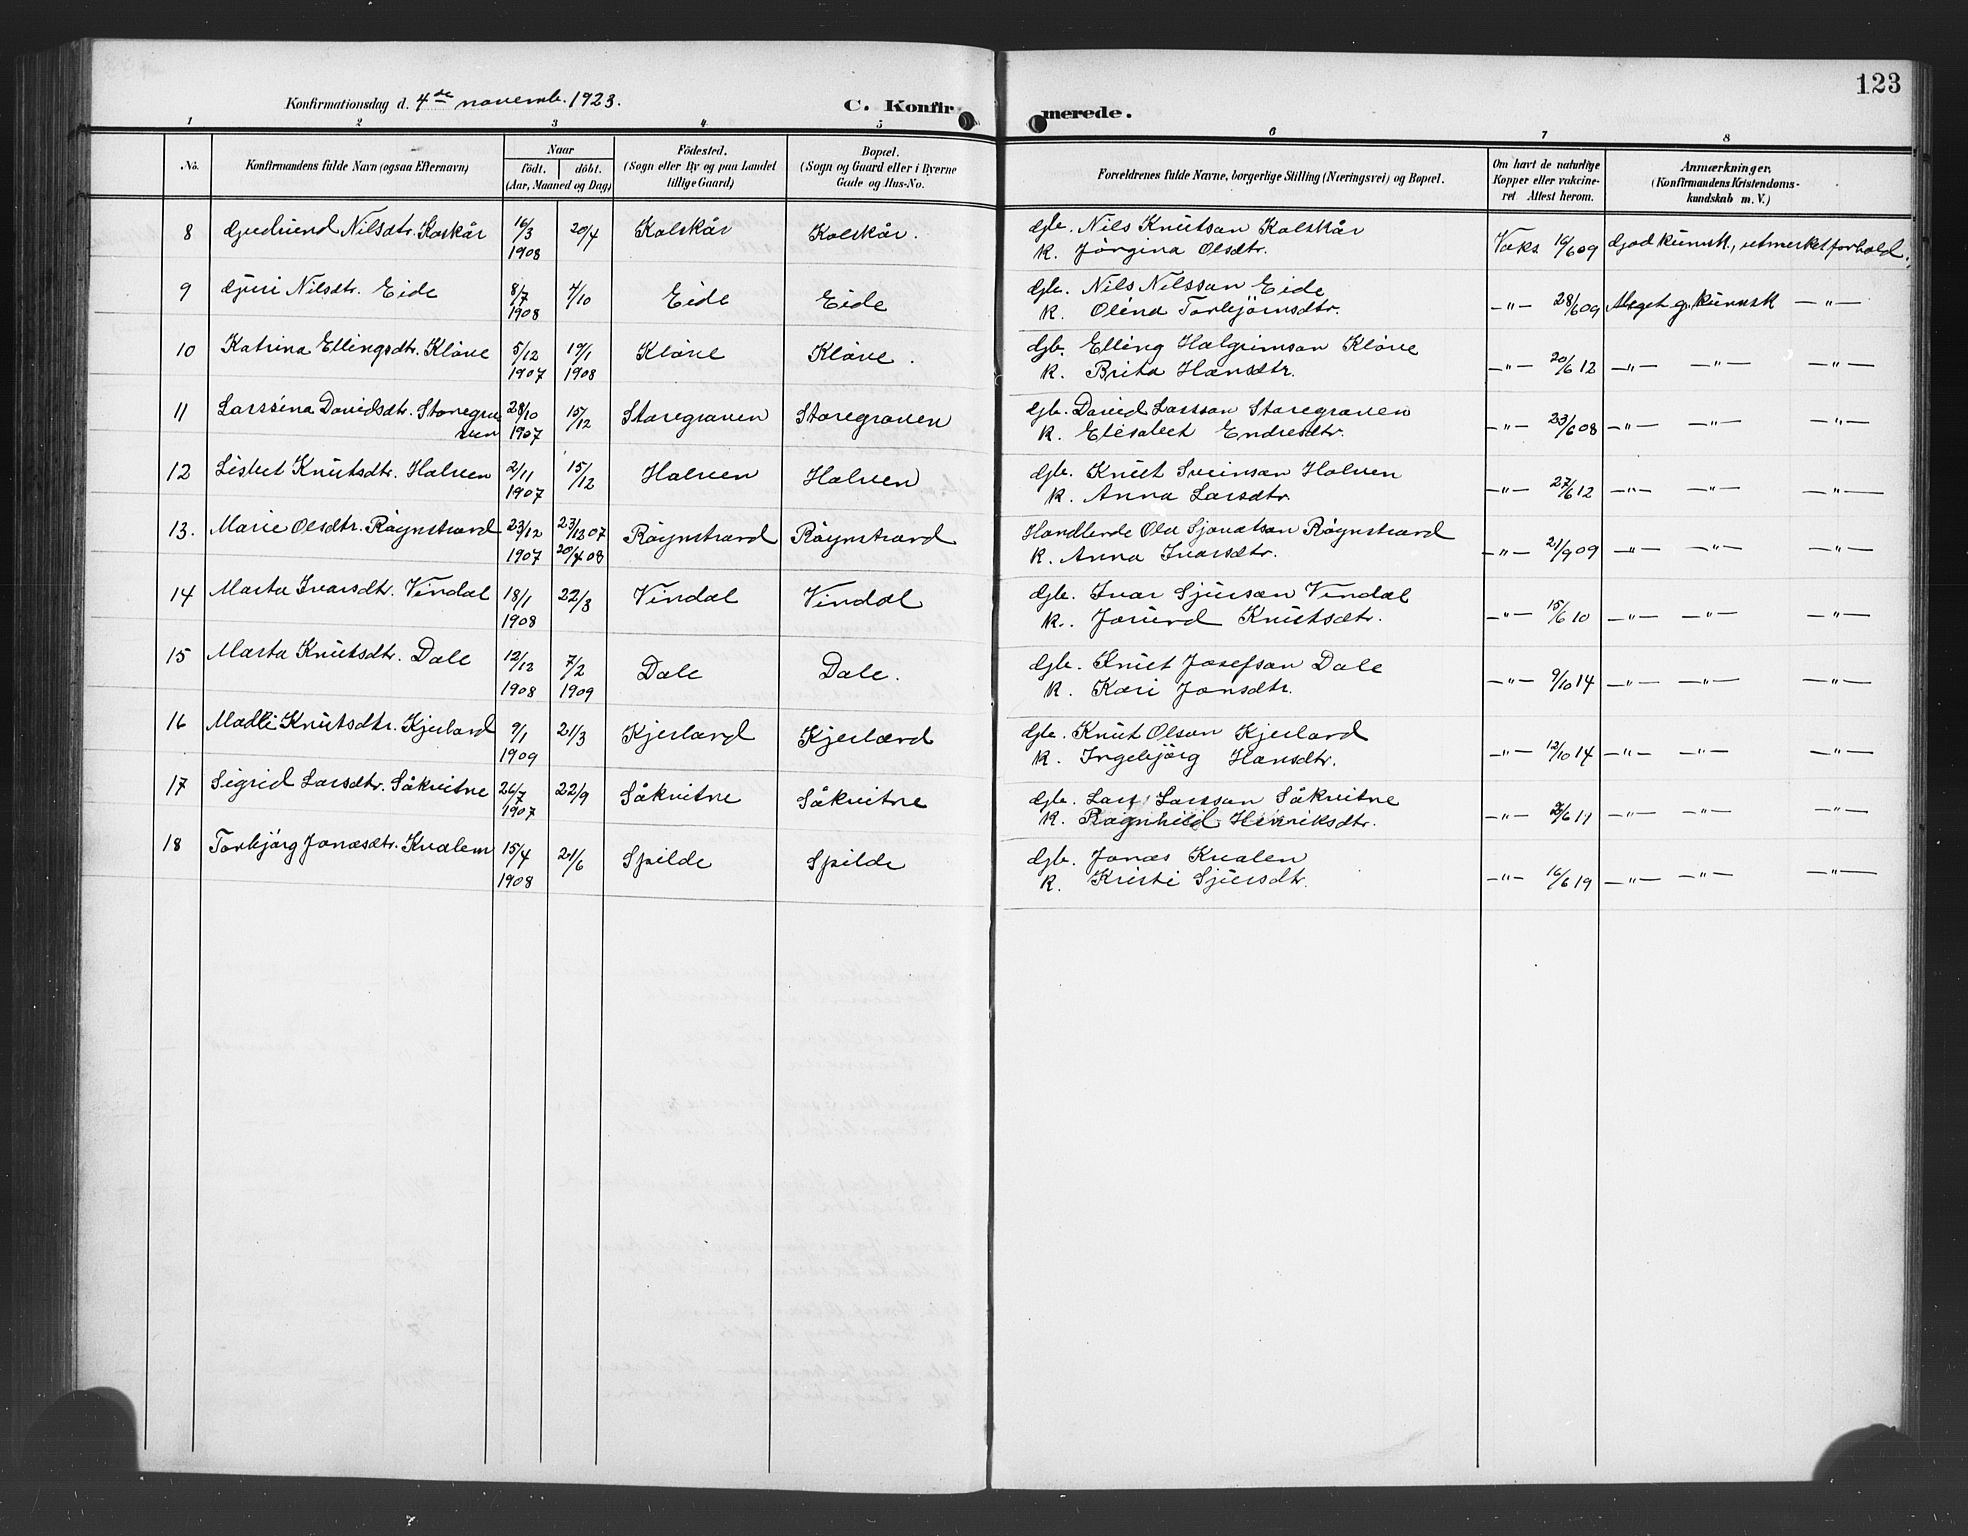 123
Konfirmationsdag d. 4de novemb. 1923. C. Konfirmerede.
1 2 3 4 5 6 7 8
No. Konfirmandens fulde Navn (ogsaa Efternavn) Naar födt. döbt. (Aar, Maaned og Dag) Födested. (Sogn eller By og paa Landet tillige Gaard) Bopæl. (Sogn og Gaard eller i Byerne Gade og Hus-No. Forældrenes fulde Navne, borgerlige Stilling (Næringsvei) og Bopæl. Om havt de naturlige Kopper eller vakcineret Attest herom. Anmærkninger. (Konfirmandens Kristendomskundskab m. V.)
8 Gudrund Nilsdtr. Kolskår 16/3 1908 20/4 Kolskår Kolskår. Gb. Nils Knutson Kolskår Vaks 19/6 09 God kunnsk., utmerket forhold.
K. Jørgina Olsdtr.
9 Guri Nilsdtr. Eide 8/7 1908 4/10 Eide Eide Gb. Nils Nilsson Eide —"— 28/6 09 Meget g. kunnsk —"—
K. Olina Torbjörnsdtr.
10 Katrina Ellingsdtr. Kløve 5/12 1907 19/1 1908 Kløve Kløve. Gb. Elling Halgrimson Kløve —"— 20/6 12 —"— —"— —"—
K. Brita Hansdtr.
11 Larssina Davidsdtr. Storegraven 28/10 1907 15/12 Storegraven Storegraven Gb. David Larsson Storegraven —"— 23/6 08 —"— —"— —"—
K. Elisabet Endresdtr.
12 Lisbet Knutsdtr. Halven 2/11 1907 15/12 Halven Halven Gb. Knut Sveinson Halven —"— 27/6 12 —"— —"— —"—
K. Anna Larsdtr.
13. Marie Olsdtr. Røynstrand 23/12 1907 23/12 07 20/4 08 Røynstrand Røynstrand Handlende Ola Sjonatson Røynstrand —"— 21/9 09 —"— —"— —"—
K. Anna Ivarsdtr.
14 Marta Ivarsdtr. Vindal 18/1 1908 22/3 Vindal Vindal Gb. Ivar Sjurson Vindal —"— 15/6 10 —"— —"— —"—
K. Jorund Knutsdtr.
15 Marta Knutsdtr. Dale 12/12 1908 7/2 1909 Dale Dale. Gb. Knut Josefson Dale —"— 9/10 14 —"— —"— —"—
K. Kari Jonsdtr.
16 Madli Knutsdtr. Kjerland 9/1 1909 21/3 Kjerland Kjerland Gb. Knut Olson Kjerland —"— 12/10 14 —"— —"— —"—
K. Ingebjörg Hansdtr.
17 Sigrid Larsdtr. Såkvitne 26/7 1907 22/9 Såkvitne Såkvitne Gb. Lars Larsson Såkvitne —"— 2/6 11 —"— —"— —"—
K. Ragnhild Henriksdtr.
18 Torbjörg Jonasdtr. Kvalem 15/4 1908 21/6 Spilde Spilde Gb. Jonas Kvalen —"— 16/6 19 —"— —"— —"—
K. Kristi Sjursdtr.